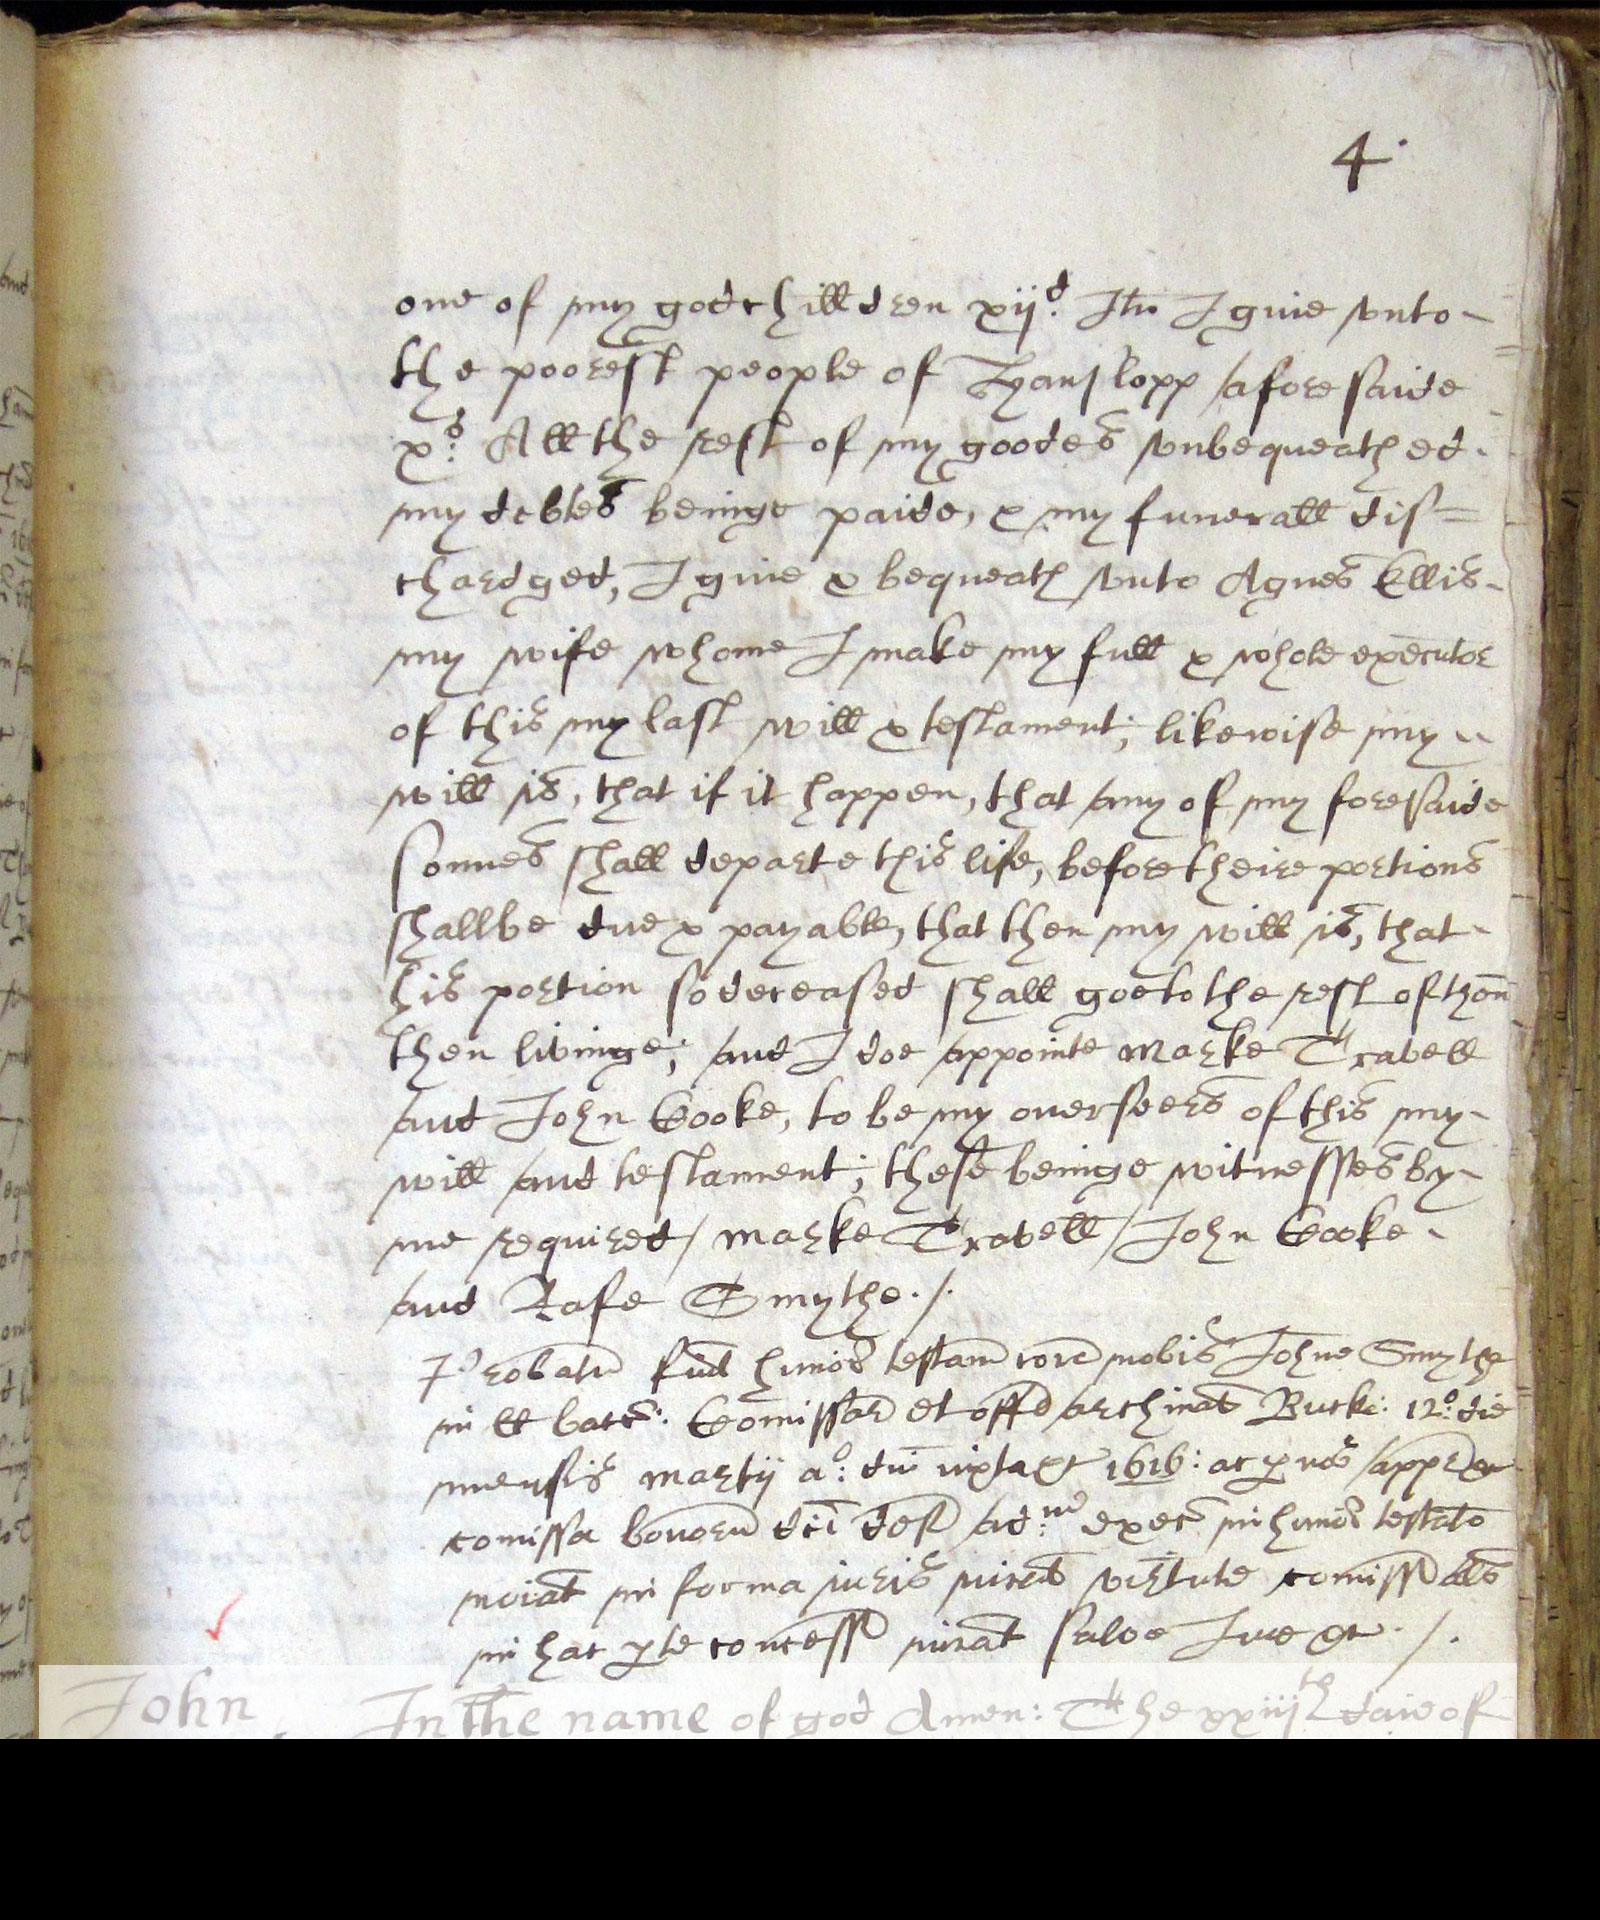 4
one of my godchilldren xijd. Itm I giue vnto
the poorest people of Hanslopp aforesaide
xs. All the rest of my goodes vnbequeathed
my debtes beinge paide, & my funerall dis=
chardged, I giue & bequeath vnto Agnes Ellis
my wife whome I make my full & whole executor
of this my last will & testament; likewise my
will is, that if it happen, that any of my foresaide
sonnes shall departe this life, before theire portions
shallbe due & payable, that then my will is, that
his portion so deceased shall goe to the rest of them
then livinge; and I doe appointe Marke Travell
and John Cooke, to be my overseers of this my
will and testament; these beinge witnesses by
me required / Marke Travell / John Cooke
and Rafe Smythe ./.
Probatū fuit humōi testam corā nobis Johne Smythe
in ll bacc: Comissar et offic archinat Buck: 12o: die
mensis martij ao: dni iuxta &c 1616: ac p nos approbat
comissa bonorū dci def ad:ne exec in humōi testato
noīat in forma iuris iurat virtute comiss als
in hac pte concess iurat salvo Jure &c ./.
John In the name of god Amen: The xxiijth daie of